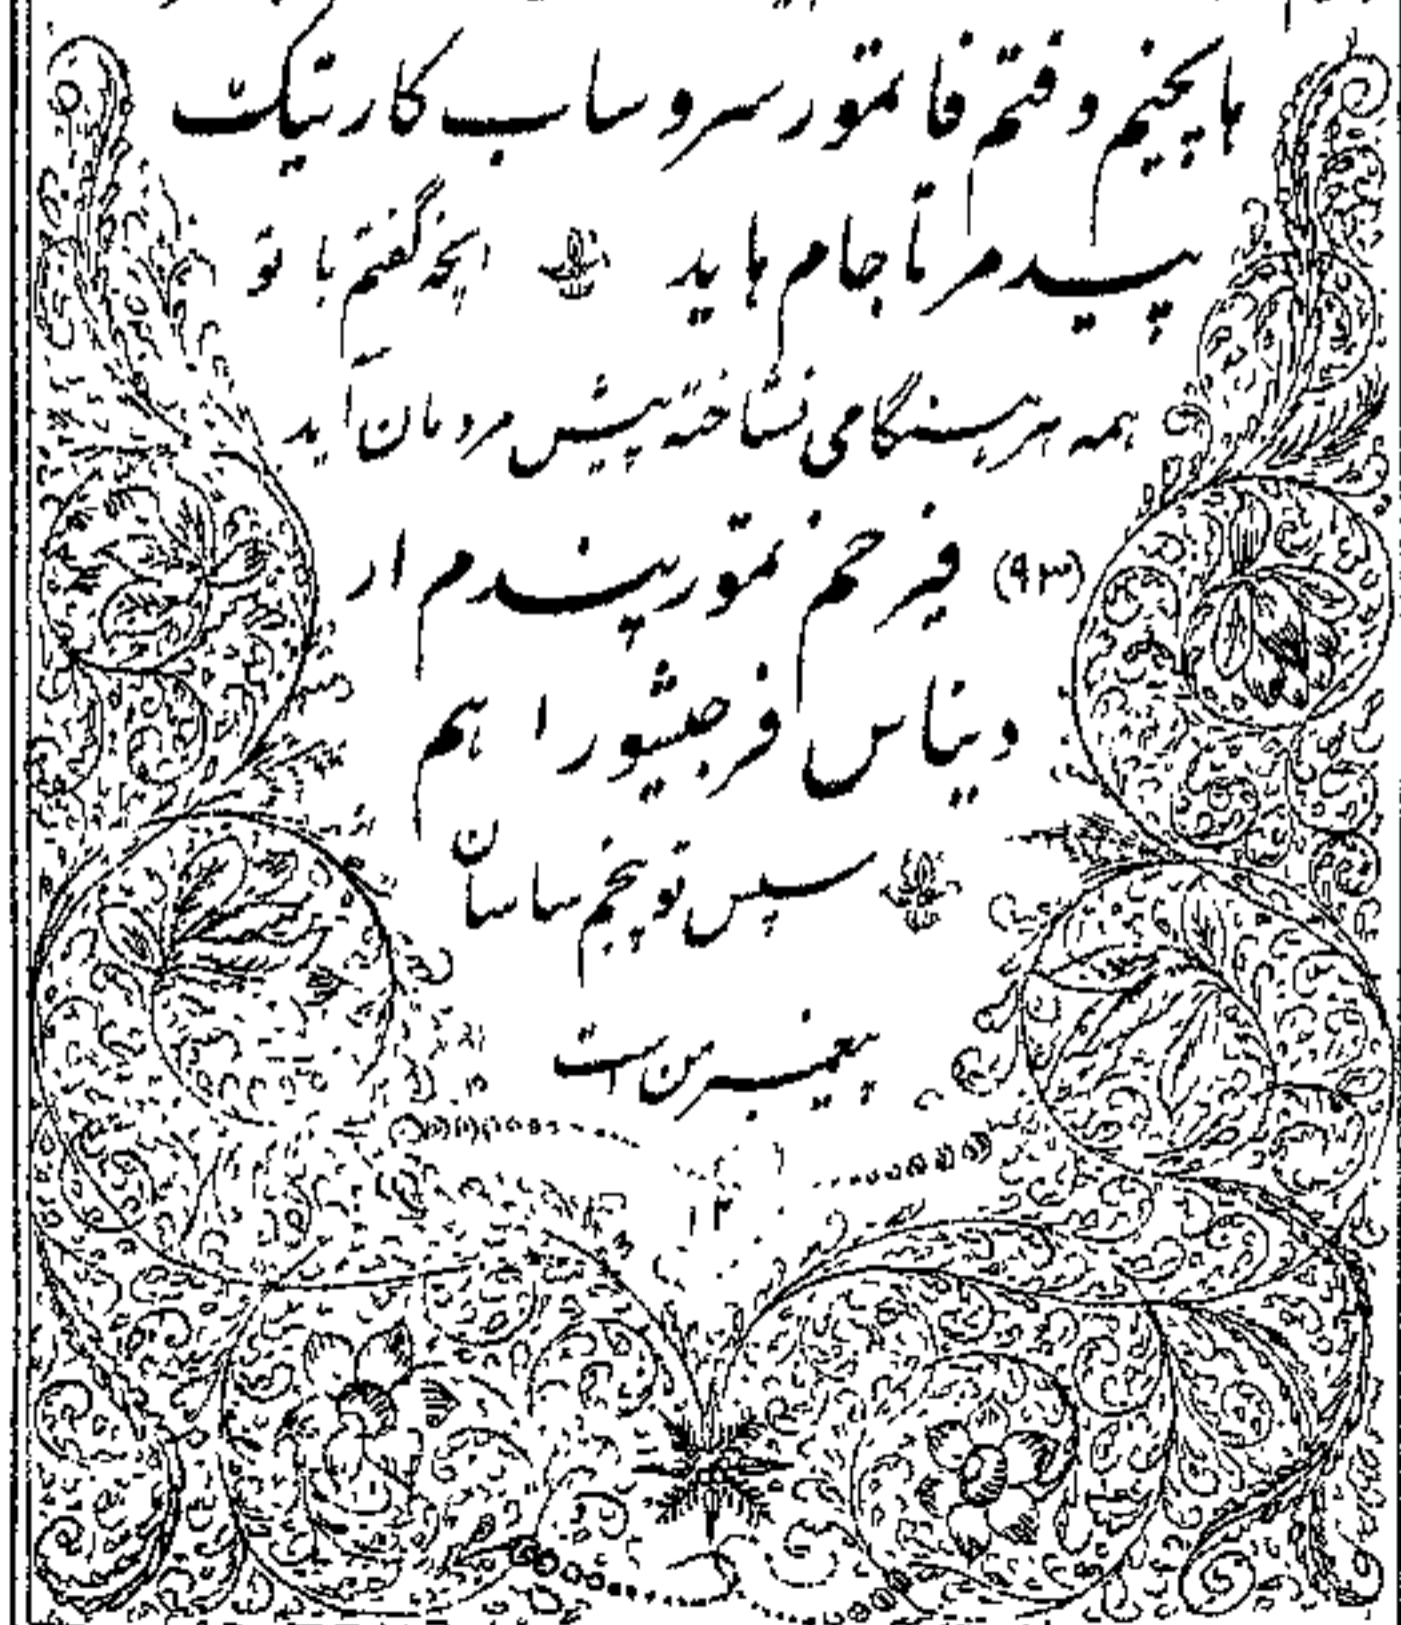 هایخیم و فتم فا نمتور سروساب کارتیک
پیدمر تا جام هاید انچه گفتم با تو
همه هر هنگامی نشاخته پیش مردمان آید
(۹۳) فیر خم نمتور پندم ار
دیناس فرجیشور ا هم
سپس تو پنجم ساسان
پیغمبر من است